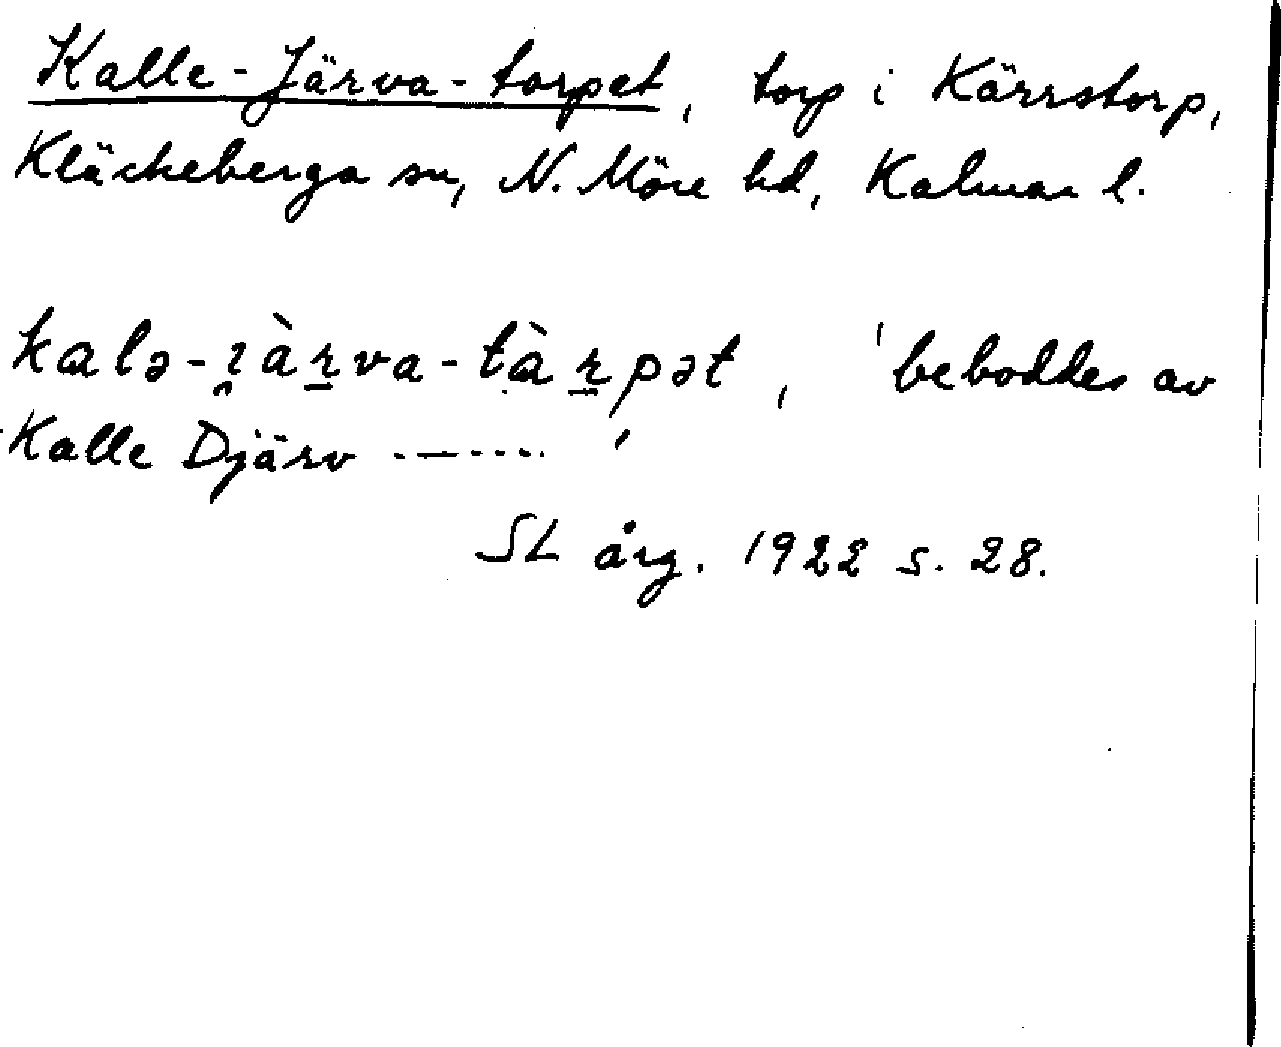 Kalle-Järva-torpet, torp i Kärrstorp,
Kläckeberga sn, N. Möre hd, Kalmar l.
kalə-ı̯àr̠va-tàr̠pət, 'beboddes av
Kalle Djärv -------'
SL årg. 1922 s. 28.